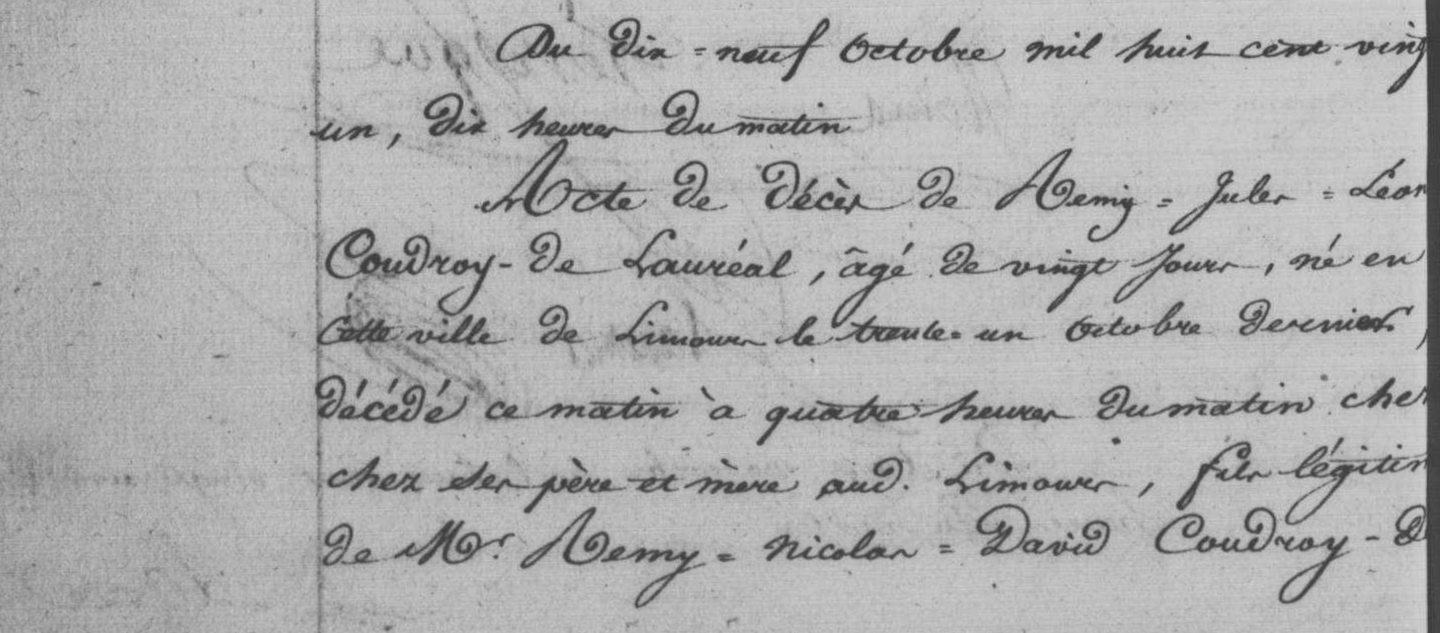 Du dix = neuf Octobre mil huit cent ving
un, dix heures du matin
Acte de décès de Remy = Jules = Léon
Coudroy - de Lauréal, âgé de vingt Jours, né en
Cette ville de Limours le trente = un Octobre dernier,
décédé ce matin à quatre heures du matin chez
chez ses père et mère aud. Limours, fils légitim
de Mr. Remy = Nicolas = David Coudroy - De